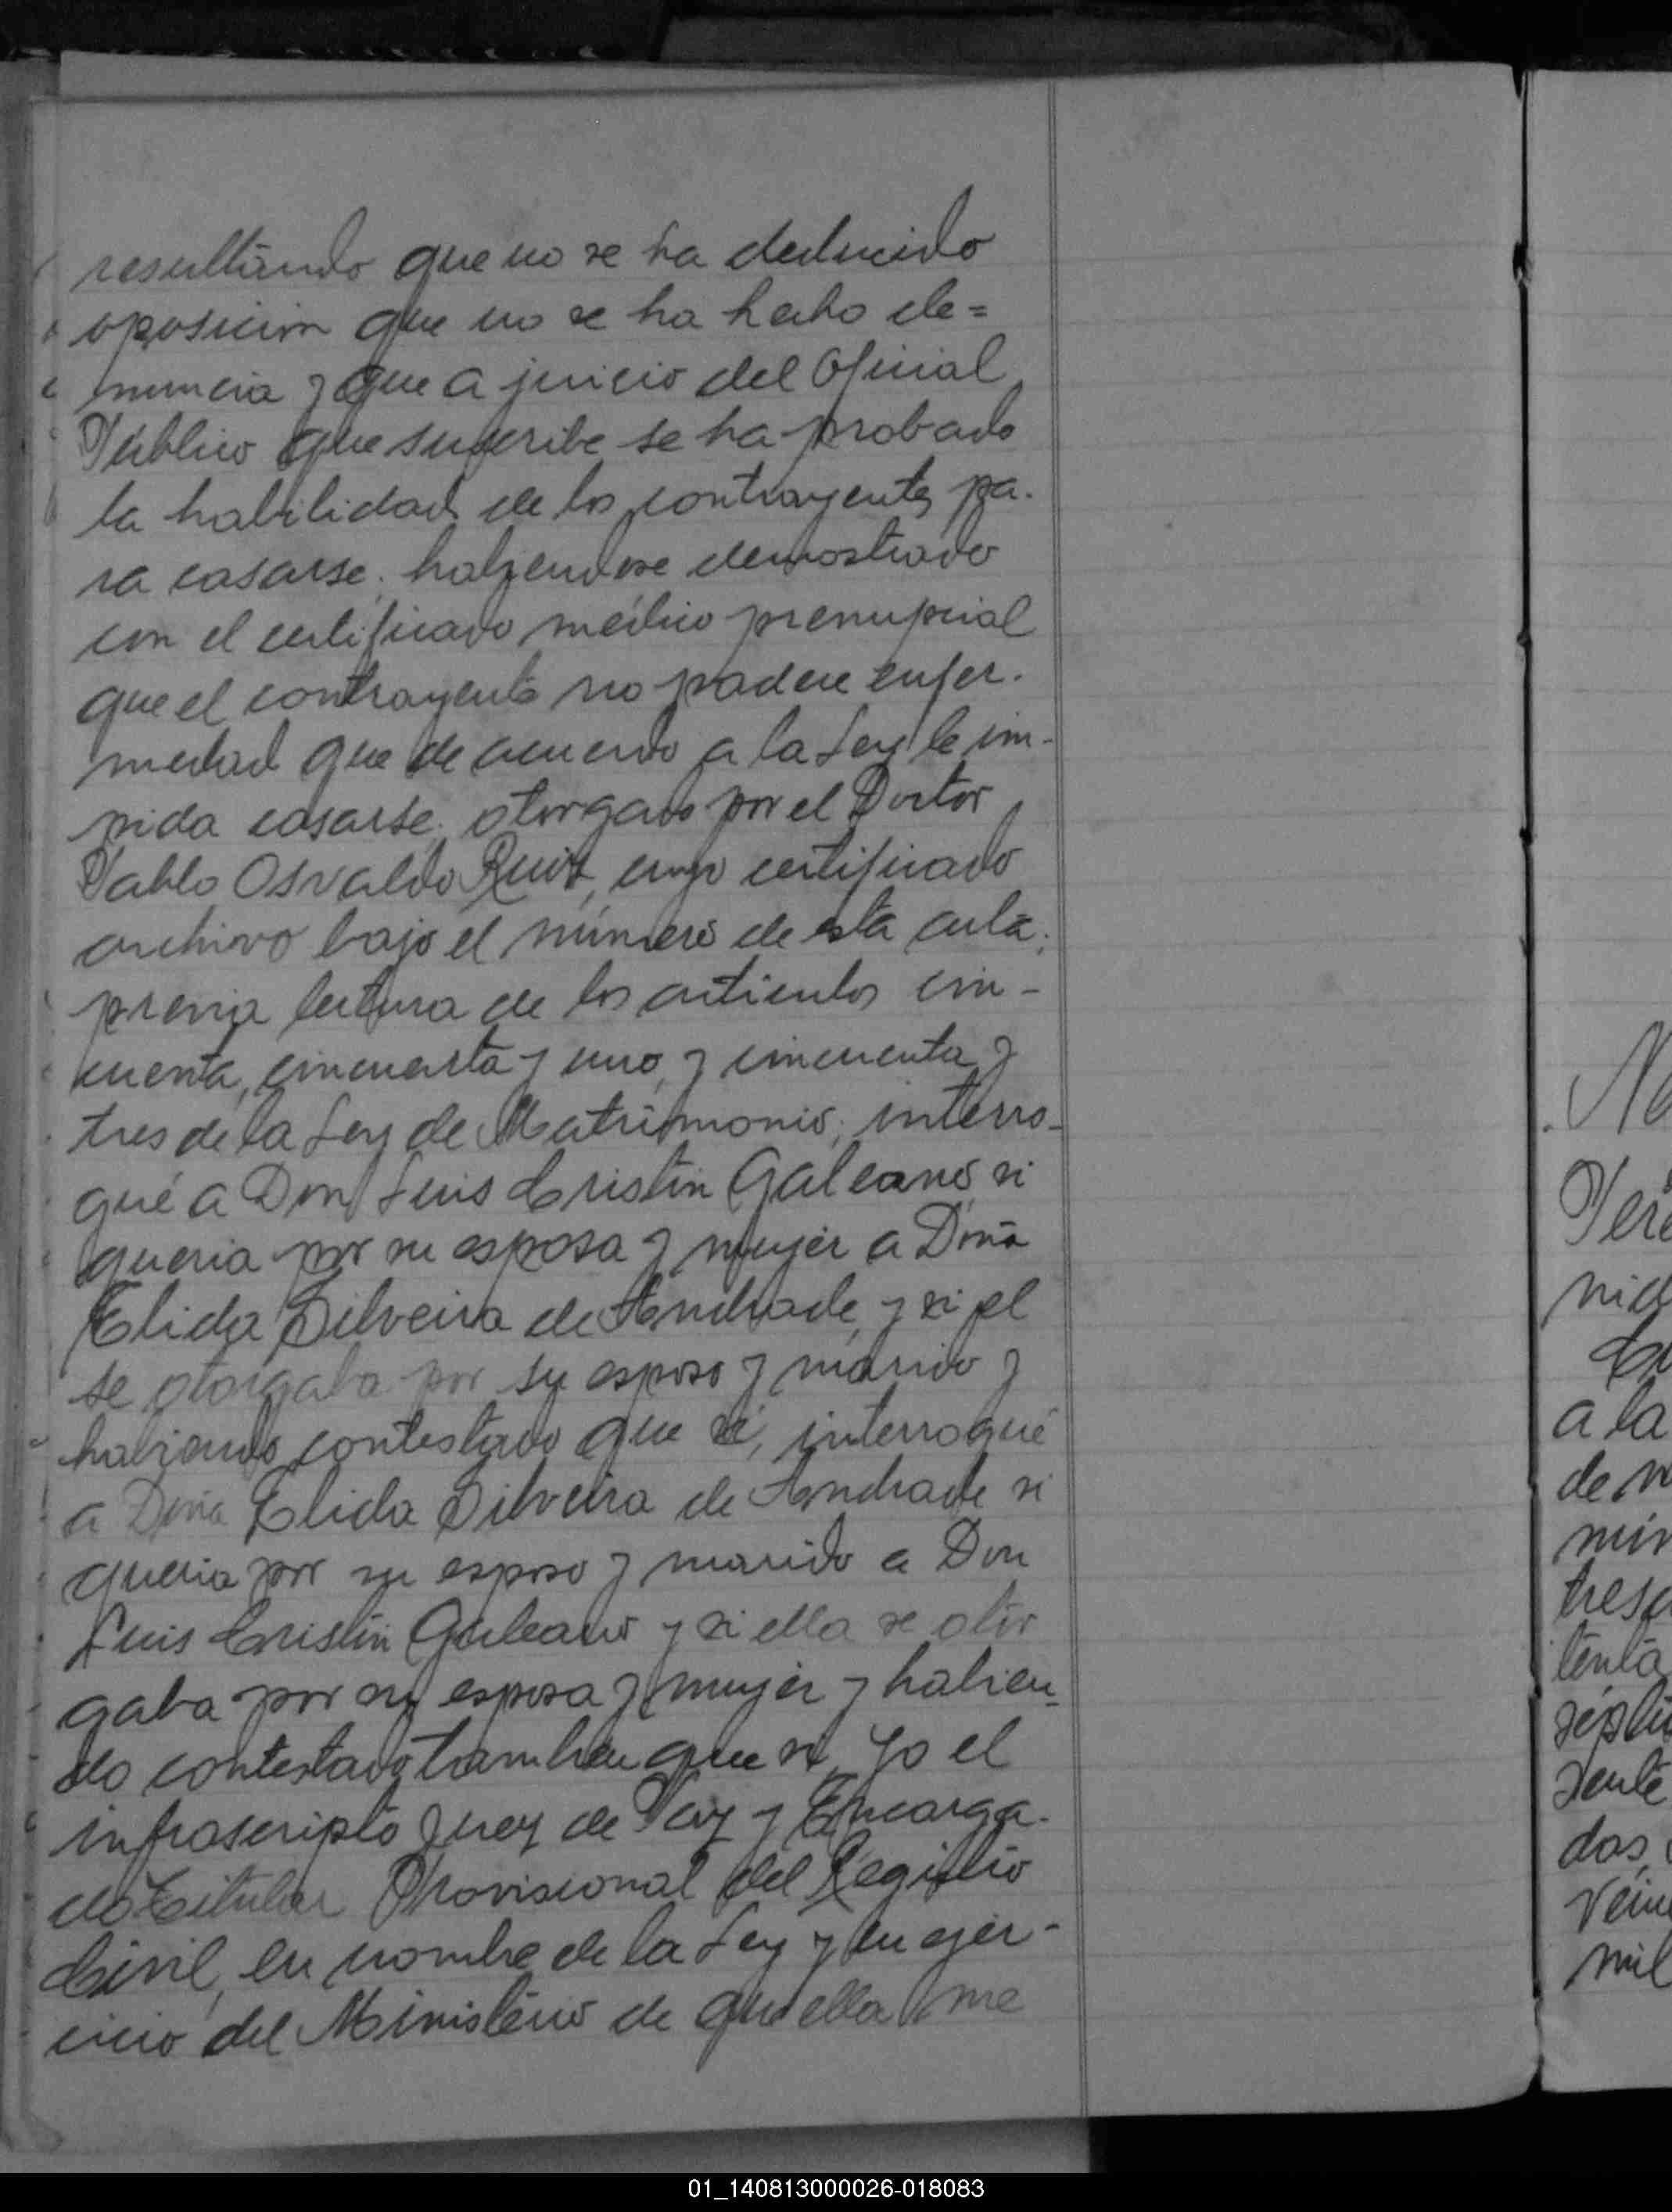 resultando que no se ha deducido
oposicion que no se ha hecho de=
nuncia y que a juicio del Oficial
Público que suscribe se ha probado
la habilidad de los contrayentes pa-
ra casarse; habiendose demostrado
con el certificado médico prenupcial
que el contrayente no padece enfer-
medad que de acuerdo a la Ley le im-
pida casarse, otorgado por el Doctor
Pablo Osvaldo Ruiz, cuyo certificado
archivo bajo el número de esta acta;
previa lectura de los articulos cin-
cuenta, cincuenta y uno, y cincuenta y
tres de la Ley de Matrimonio; interro-
gué a Don Luis Cristin Galeano si
queria por su esposa y mujer a Doña
Elida Silveira de Andrade, y si el
se otorgaba por su esposo y marido y
habiendo contestado que sí, interrogué
a Doña Elida Silveira de Andrade si
queria por su esposo y marido a Don
Luis Cristin Galeano y si ella se otor
gaba por su esposa y mujer y habien-
do contestado tambien que si, Yo el
infrascripto Juez de Paz y Encarga-
do Titular Provisional del Registro
Civil, en nombre de la Ley y en ejer-
cicio del Ministerio de que ella me
a la
mil
01_140813000026-018083